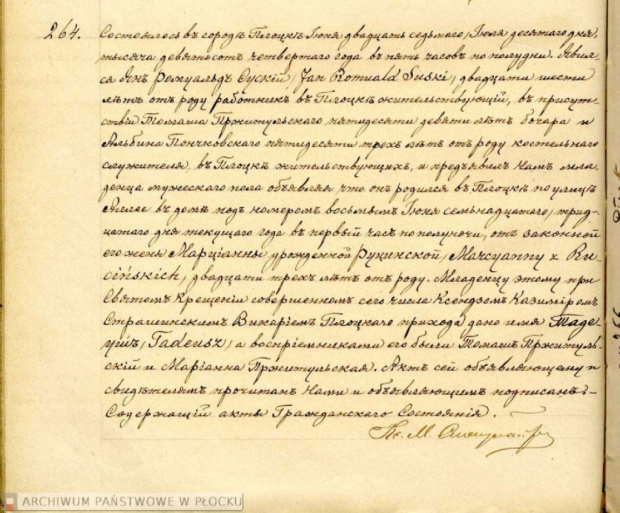 264.
Состоялось въ городѣ Плоцкѣ Іюня двадцать седьмаго, Іюля десятаго дня,
тысяча девятьсотъ четвертаго года въ пять часовъ по полудни. Явил-
ся Янъ Ромуальдъ Суский, Jan Romuald Suski, двадцати шести
лѣтъ отъ роду работникъ въ Плоцкѣ жительствующій, въ присут-
ствіи Томаша Пржитульскаго пятидесяти девяти лѣтъ бочара и
Альбина Пончковскаго пятидесяти трехъ лѣтъ отъ роду костельнаго
служителя, въ Плоцкѣ жительствующихъ, и предъявилъ Намъ мла-
денца мужескаго пола объявляя, что онъ родился въ Плоцкѣ по улицѣ
Аллее въ домѣ подъ номеромъ восьмымъ Іюня семьнадцатаго, трид-
цатаго дня текущаго года въ первый часъ по полуночи, отъ законной
его жены Марціанны урожденной Руцинской, Marcyanny z Ru-
cińskich, двадцати трехъ лѣтъ отъ роду. Младенцу этому при
Святомъ Крещеніи совершенномъ сего числа Ксендзомъ Казимiромъ
Страшинскимъ Викаріемъ Плоцкаго прихода дано имя Таде-
ушъ, Tadeusz, а воспріемниками его были Томашъ Пржитуль-
скій и Маріанна Пржитульская. Актъ сей объявляющему и
свидѣтелямъ прочитанъ Нами и объявляющимъ подписанъ.-
Содержащій акты Гражданскаго Состоянія.
Кс. М.
ARCHIWUM PAŃSTWOWE W PŁOCKU